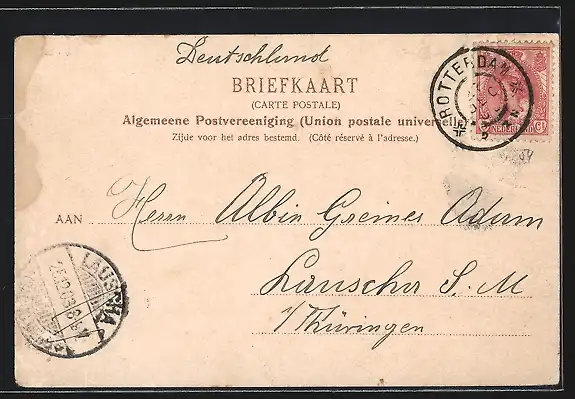 Deutschland
BRIEFKAART
(CARTE POSTALE)
Algemeene Postvereeniging (Union postale universelle)
Zijde voor het adres bestemd. (Côté réservé à l'adresse.)
ROTTERDAM
NEDERLAND
AAN Herrn Albin Greiner Adam
Lauscha S. M
i/Thüringen
LAUSCHA